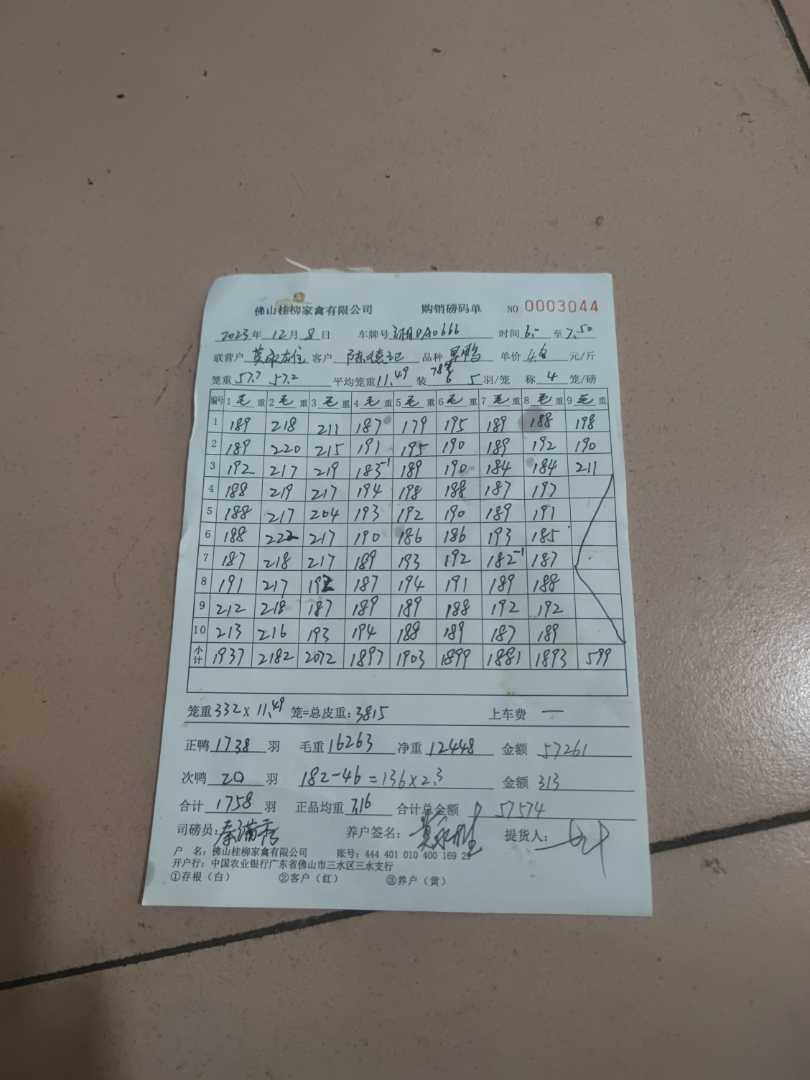 佛山桂柳家禽有限公司 购销磅码单 NO 0003044
2023年 12月 8日 车牌号 A0666 时间 6:- 至 7.50
联营户 客户 品种 单价 元/斤
笼重 57.7 57.2 平均笼重 11.49 装 5 羽/笼 称 4 笼/磅
编号 1 毛 重 2 毛 重 3 毛 重 4 毛 重 5 毛 重 6 毛 重 7 毛 重 8 毛 重 9 毛 重
1 189 218 211 187 179 195 189 188 198
2 189 220 215 191 195 190 189 192 190
3 192 217 219 183-1 189 190 184 184 211
4 188 219 217 194 198 188 187 197
5 188 217 204 193 192 190 189 191
6 188 222 217 190 186 186 193 185
7 187 218 217 189 193 192 182-1 187
8 191 217 192 187 194 191 189 188
9 212 218 187 189 189 188 192 192
10 213 216 193 194 188 189 187 189
小计 1937 2182 2072 1897 1903 1899 1881 1893 599
笼重 332 x 11.49 笼=总皮重: 3815 上车费 一
正鸭 1738 羽 毛重 16263 净重 12448 金额 57261
次鸭 20 羽 182-46=136×2.3 金额 313
合计 1758 羽 正品均重 7.16 合计总金额 57574
司磅员: 秦满秀 养户签名: 提货人:
户 名: 佛山桂柳家禽有限公司 账号: 444 401 010 400 169 2
开户行: 中国农业银行广东省佛山市三水区三水支行
①存根(白) ②客户(红) ③养户(黄)